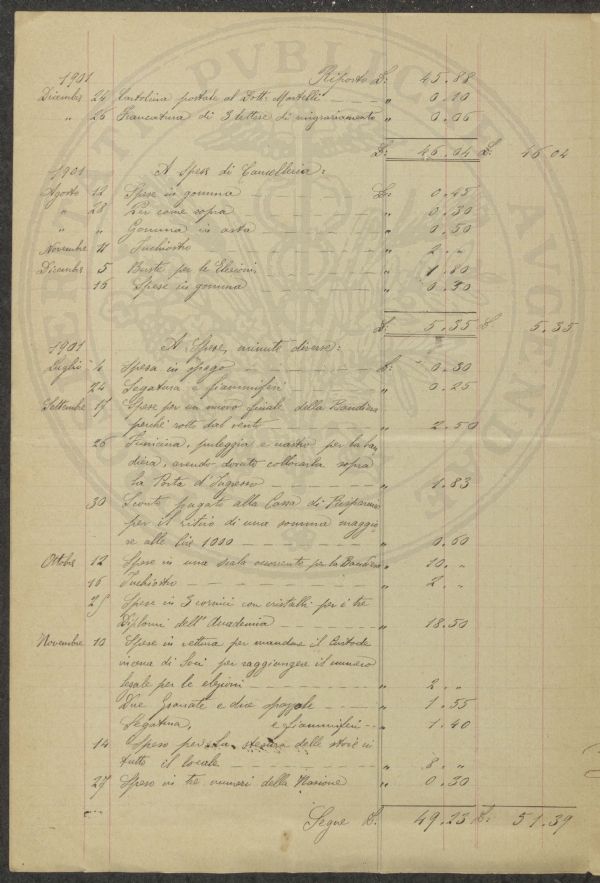 PVBLICAE
1901 Riporto L: 45.88
Dicembre 24 Cartolina postale al Dott. Martelli " 0.10
" 26 Francatura di 3 lettere di ringraziamento " 0.06
L: 46.04 L: 46.04
1901 A Spese di Cancelleria:
Agosto 12 Spese in gomma L: 0.45
" 28 Per come sopra " 0.30
" " Gomma in asta " 0.50
Novembre 11 Inchiostro " 2. "
Dicembre 5 Buste per le Elezioni " 1.80
16 Spese in gomma " 0.30
L: 5.35 L 5.35
1901 A Spese, minute diverse:
Luglio 4 Spesa in spago L: 0.30
24 Segatura e fiammiferi " 0.25
Settembre 17 Spese per un nuovo finale della Bandiera
perchè rotto dal vento " 2.50
26 Funicina, puleggia e nastro per la ban
diera, avendo dovuto collocarla sopra
la Porta d'Ingresso " 1.83
30 Sconto pagato alla Cassa di Risparmio
per il ritiro di una somma maggio
re alle Lire 1000 " 0.60
Ottobre 12 Spese in una scala occorrente per la Bandiera 10. "
16 Inchiostro " 2. "
25 Spese in 3 cornici con cristalli per i tre
Diplomi dell'Accademia " 18.50
Novembre 10 Spese in vettura per mandare il Custode
in cerca di Soci per raggiungere il numero
legale per le elezioni " 2. "
Due Granate e due spazzole " 1.55
Segatura, e fiammiferi " 1.40
14 Spese per la stesura delle stoie in
tutto il locale " 8. "
27 Spese in tre numeri della Nazione " 0.30
Segue L: 49.23 L: 51.39